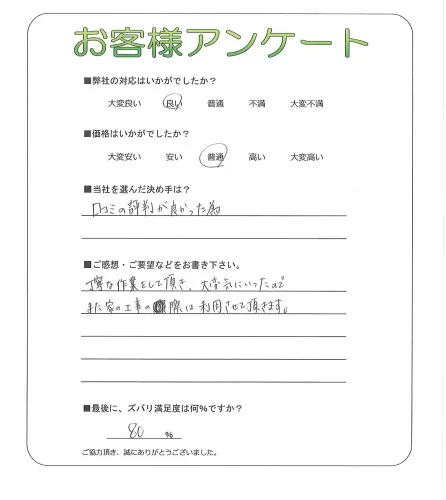 お客様アンケート
■弊社の対応はいかがでしたか?
大変良い 良い 普通 不満 大変不満
■価格はいかがでしたか?
大変安い 安い 普通 高い 大変高い
■当社を選んだ決め手は?
口コミの評判が良かった為
■ご感想・ご要望などをお書き下さい。
丁寧な作業をして頂き、大変気にいったので
また家の工事の際は利用させて頂きます。
■最後に、ズバリ満足度は何%ですか?
80 %
ご協力頂き、誠にありがとうございました。